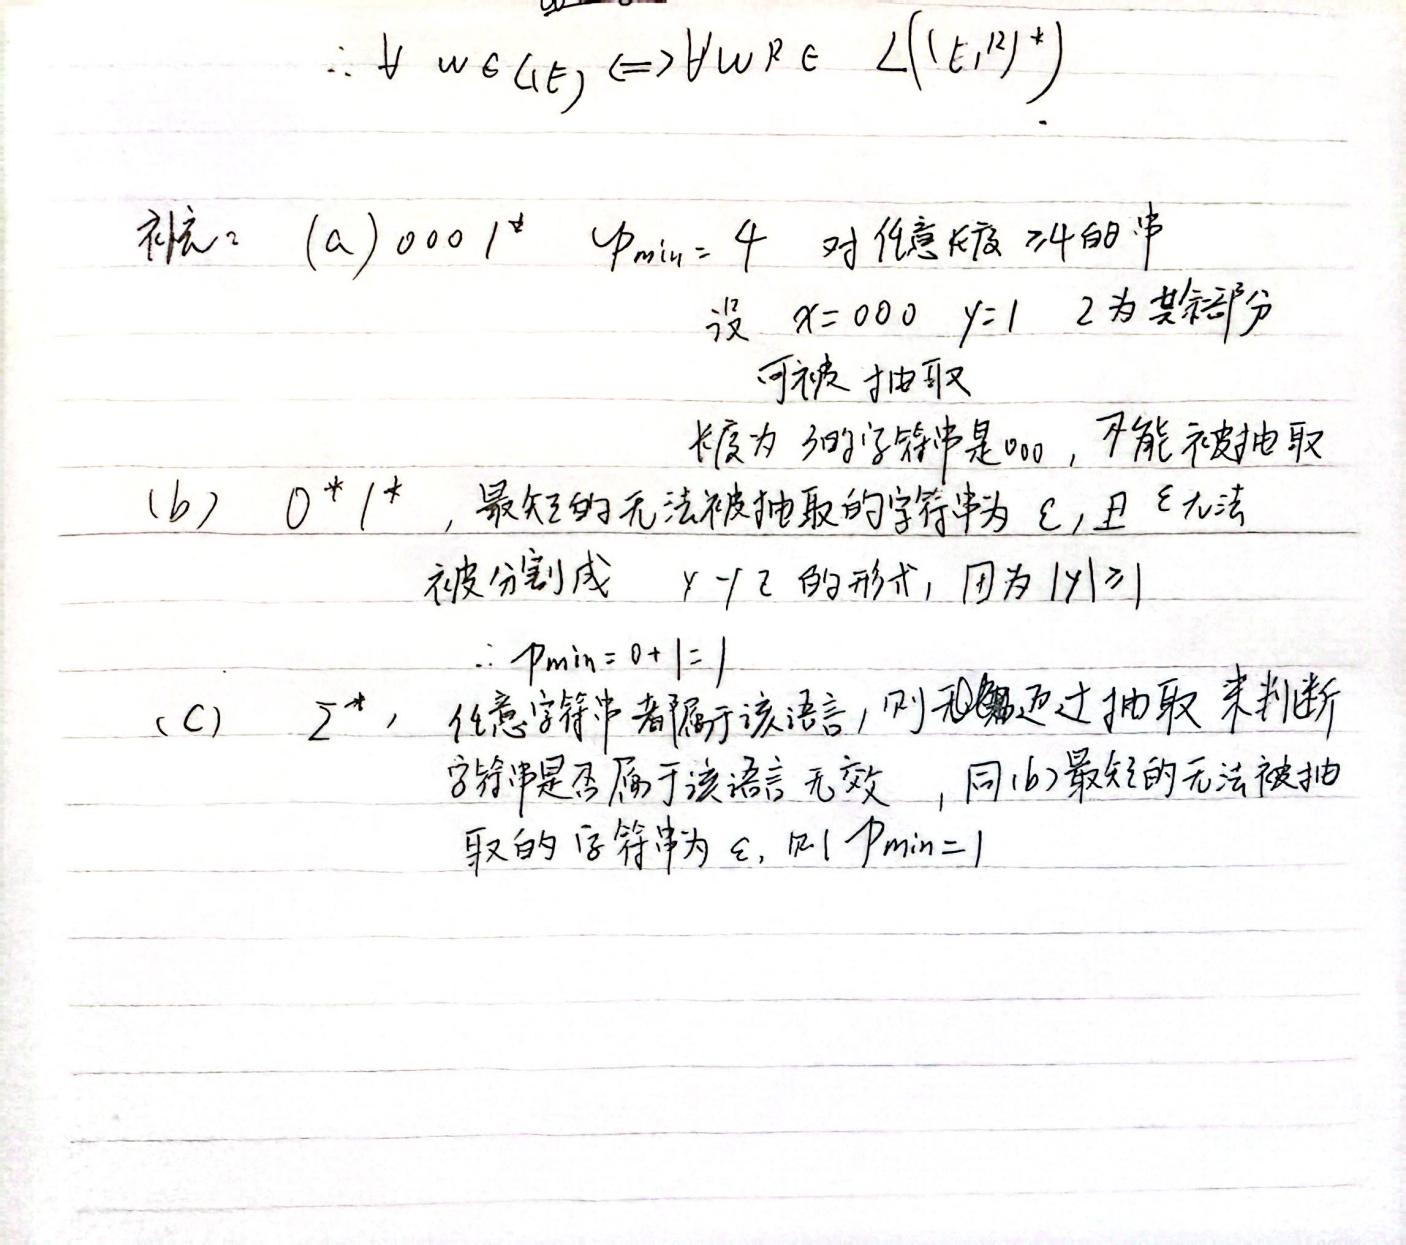 ∴ ∀ w ∈ L(E) ⟺ ∀ wR ∈ L((E1R)*)
补充: (a) 0001* pmin = 4 对任意长度 ≥4 的串
设 x=000 y=1 z为其余部分
可被抽取
长度为3的字符串是000, 不能被抽取
(b) 0*1* , 最短的无法被抽取的字符串为 ε, 且 ε 无法
被分割成 xyz 的形式, 因为 |y|≥1
∴ pmin = 0+1 = 1
(c) Σ*, 任意字符串都属于该语言, 则 通过抽取来判断
字符串是否属于该语言无效 , 同(b)最短的无法被抽
取的字符串为 ε, 则 pmin = 1